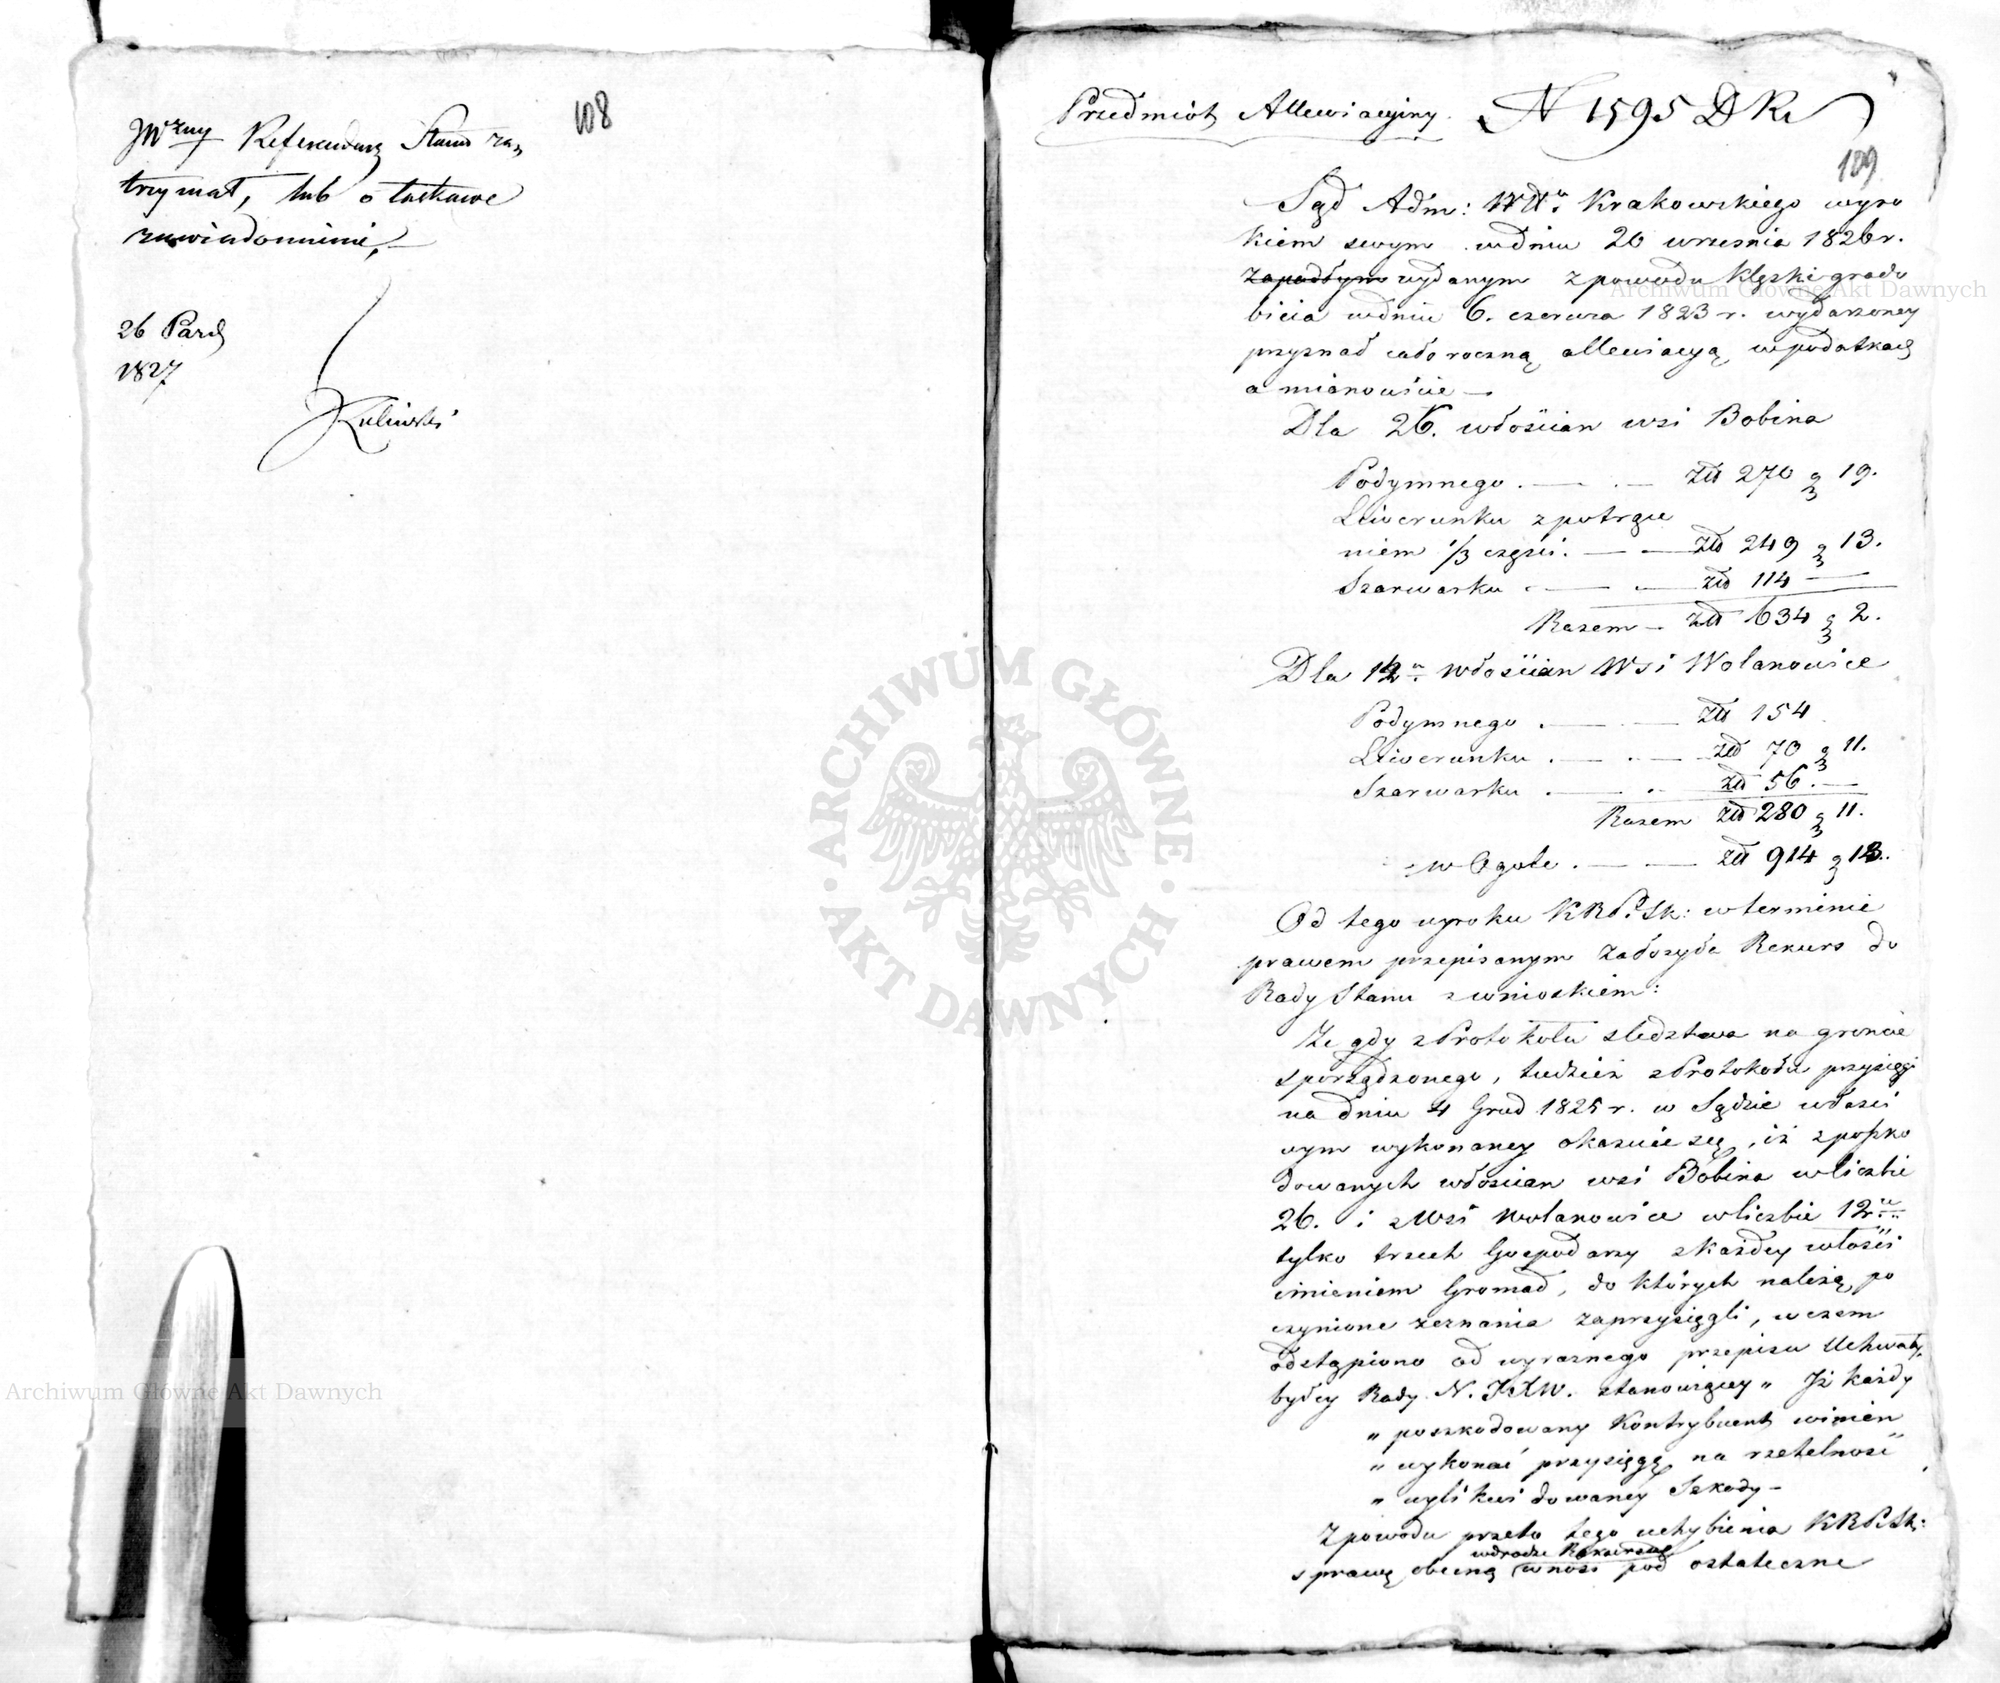 108
JWzny Referendarz Stanu za,
trzymał, lub o łaskawe
zawiadomienie,
26 Paźd
1827
Kuliński
Przedmiot Allewiacyiny. N 1595 D K
109
Sąd Adm: Wdt. Krakowskiego wyro
kiem swym w dniu 20 września 1826 r.
zapadłym wydanym z powodu klęski grado
bicia w dniu 6. czerwca 1823 r. wydarzoney
przyznał całoroczną allewiacyą w podatkach
a mianowicie —
Dla 26. włościan wsi Bobina
Podymnego . — . — złł 270 g 19.
Liwerunku z potrące
niem 1/3 części. — — złł 249 g 13.
Szarwarku . — . — złł 114 —
Razem — złł 634 g 2.
Dla 12u włościan Wsi Wolanowice
Podymnego . — — złł 154
Liwerunku . — . — złł 70 g 11.
Szarwarku . — . . złł 56. —
Razem złł 280 g 11.
w Ogole . — — złł 914 g 13.
Od tego wyroku KRPSk: w terminie
prawem przepisanym założyła Rekurs do
Rady Stanu z wnioskiem:
Że gdy z Protokołu sledztwa na gruncie
sporządzonego, tudzież z Protokołu przysięgi
na dniu 4 Grud 1825 r. w Sądzie właści
wym wykonaney okazuie się, iż z poszko
dowanych włościan wsi Bobina w liczbie
26. i z Wsi Wolanowice w liczbie 12u
tylko trzech Gospodarzy z każdey włości
imieniem Gromad, do których należą, po
czynione zeznania zaprzysięgli, w czem
odstąpiono od wyraznego przepisu Uchwały
byłey Rady N. XIW. stanowiącey „ Iż każdy
„ poszkodowany Kontrybuent winien
„ wykonać przysięgę na rzetelność
„ wylikwidowaney Szkody —
Z powodu przeto tego uchybienia KRPSk:
w drodze Rekursu
sprawę obecną wnosi pod ostateczne
Archiwum Główne Akt Dawnych
Archiwum Główne Akt Dawnych
ARCHIWUM GŁÓWNE
AKT DAWNYCH